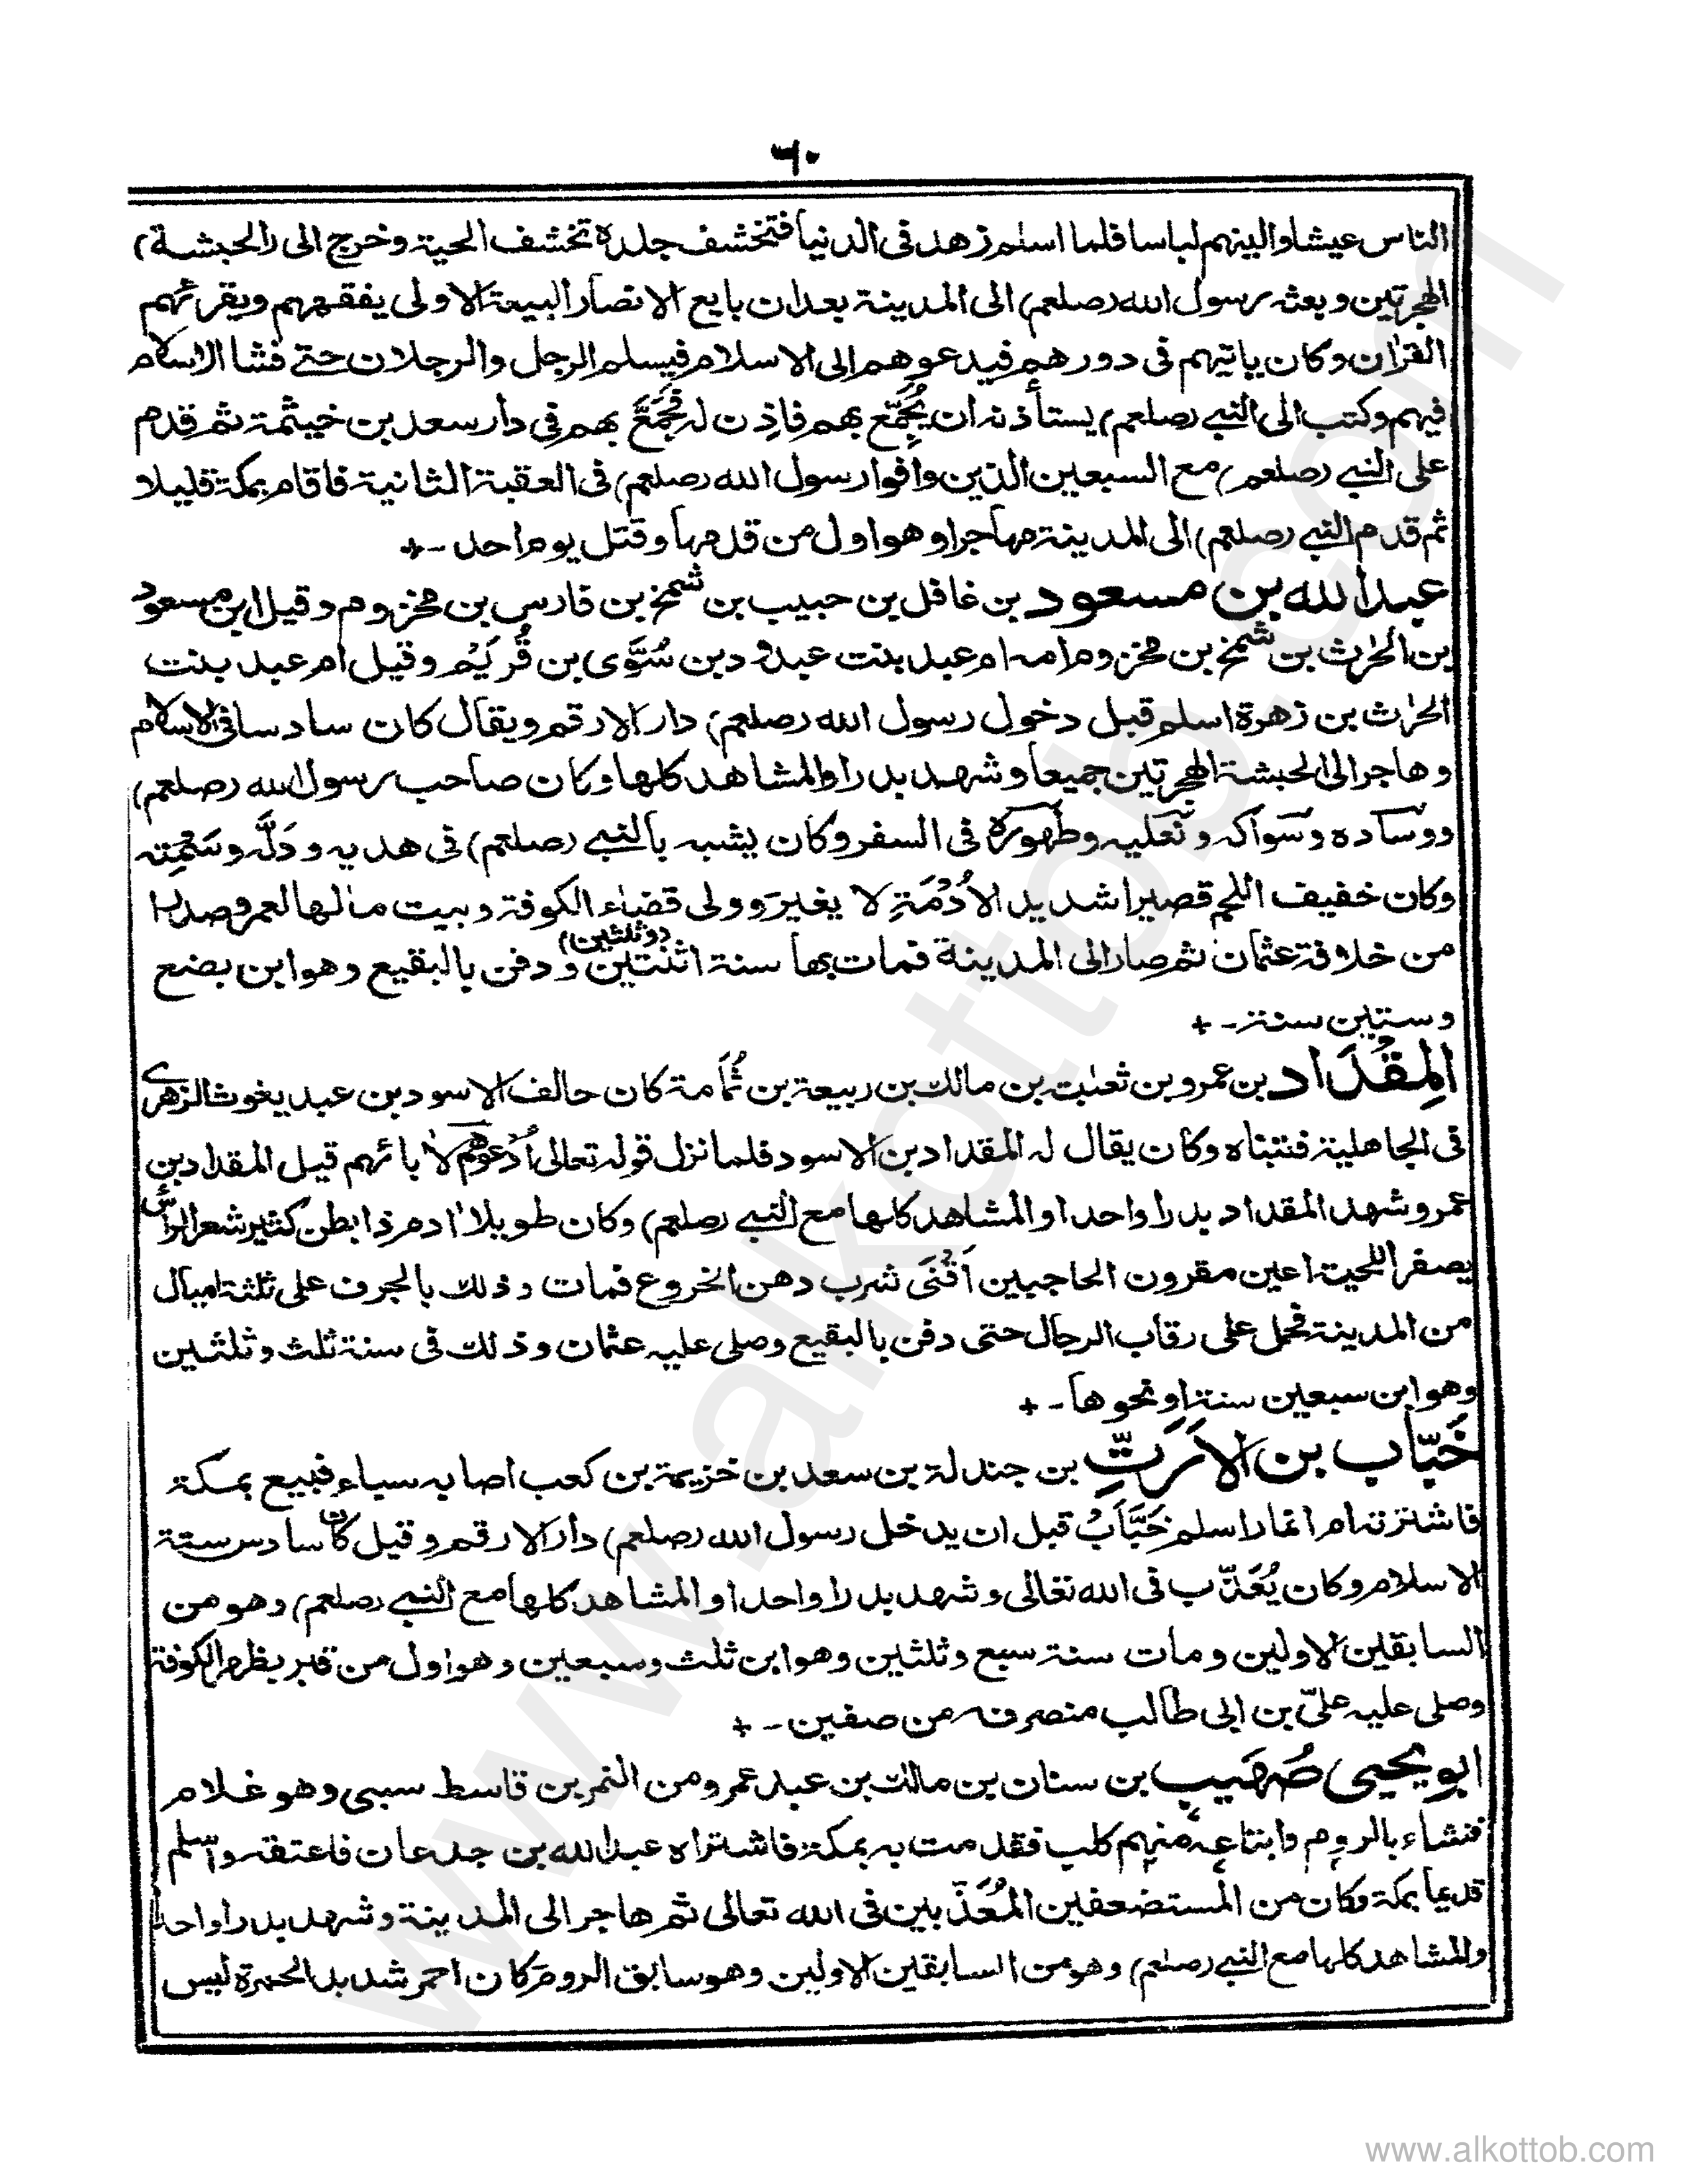 ٦٠
الناس عيشا والينهم لباسا فلما اسلم زهد فى الدنيا فتخشف جلده تخشف الحية وخرج الى (الحبشة)
الهجرتين وبعثه رسول الله (صلعم) الى المدينة بعد ان بايع الانصار البيعة الاولى يفقههم ويقرئهم
القرآن وكان ياتيهم فى دورهم فيدعوهم الى الاسلام فيسلم الرجل والرجلان حتے فشا الاسلام
فيهم وكتب الى النبے (صلعم) يستأذنه ان يُجَمّع بهم فاذِن له فجَمَّعَ بهم فِي دار سعد بن خيثمة ثم قدم
على النبے (صلعم) مع السبعين الذين وافوا رسول الله (صلعم) فى العقبة الثانية فاقام بمكة قليلا
ثم قدم النبے (صلعم) الى المدينة مهاجرا وهو اول من قدمها وقتل يوم احد - +
عبد الله بن مسعود بن غافل بن حبيب بن شمخ بن فارس بن مخزوم وقيل ابن مسعود
بن الحٰرث بن شمخ بن مخزوم امه ام عبد بنت عبد ود بن سُوَّى بن قُرَيْم وقيل ام عبد بنت
الحرٰث بن زهرة اسلم قبل دخول رسول الله (صلعم) دار الارقم ويقال كان سادسا فى الاسلام
وهاجر الى الحبشة الهجرتين جميعا وشهد بدرا والمشاهد كلها وكان صاحب رسول الله (صلعم)
ووساده وسواكه ونعليه وطهوره فى السفر وكان يشبه بالنبے (صلعم) فى هديه ودَلَّه وسَمْتِه
وكان خفيف اللحم قصيرا شديد الاُدْمَةِ لا يغير وولى قضاء الكوفة وبيت مالها لعمر وصدرا
من خلافة عثمان ثم صار الى المدينة فمات بها سنة اثنتين (وثلثين) ودفن بالبقيع وهو ابن بضع
وستين سنة - +
المِقْدَاد بن عمرو بن ثعلبة بن مالك بن ربيعة بن ثُمَامة كان حالف الاسود بن عبد يغوث الزهرے
فى الجاهلية فتبناه وكان يقال له المقداد بن الاسود فلما نزل قوله تعالى اُدْعوْهُمْ لاٰبائهم قيل المقداد بن
عمرو شهد المقداد بدرا واحدا والمشاهد كلها مع النبے (صلعم) وكان طويلا اٰدم ذا بطن كثير شعر الرأس
يصفر اللحية اعين مقرون الحاجبين اَقْنَى شرب دهن الخروع فمات وذلك بالجرف على ثلثة اميال
من المدينة فحمل على رقاب الرجال حتى دفن بالبقيع وصلى عليه عثمان وذلك فى سنة ثلث وثلثين
وهو ابن سبعين سنة او نحوها - +
خَبّاب بن الاَرَتِّ بن جندلة بن سعد بن خزيمة بن كعب اصابه سباء فبيع بمكة
فاشترته ام انمار اسلم خَبَّابٌ قبل ان يدخل رسول الله (صلعم) دار الارقم وقيل كان سادس ستة
الاسلام وكان يُعَذَّب فى الله تعالى وشهد بدرا واحدا والمشاهد كلها مع النبے (صلعم) وهو من
السابقين الاولين ومات سنة سبع وثلثين وهو ابن ثلث وسبعين وهو اول من قبر بظهر الكوفة
وصلى عليه علىّ بن ابى طالب منصرفه من صفين - +
ابو يحيى صُهَيب بن سنان بن مالك بن عبد عمرو من النمر بن قاسط سبى وهو غلام
فنشاء بالروم وابتاعه منهم كلب فقدمت به بمكة فاشتراه عبد الله بن جدعان فاعتقه واسلم
قديما بمكة وكان من المستضعفين المُعَذَّبين فى الله تعالى ثم هاجر الى المدينة وشهد بدرا واحدا
والمشاهد كلها مع النبے (صلعم) وهو من السابقين الاولين وهو سابق الروم كان احمر شديد الحمرة ليس
www.alkottob.com
www.alkottob.com